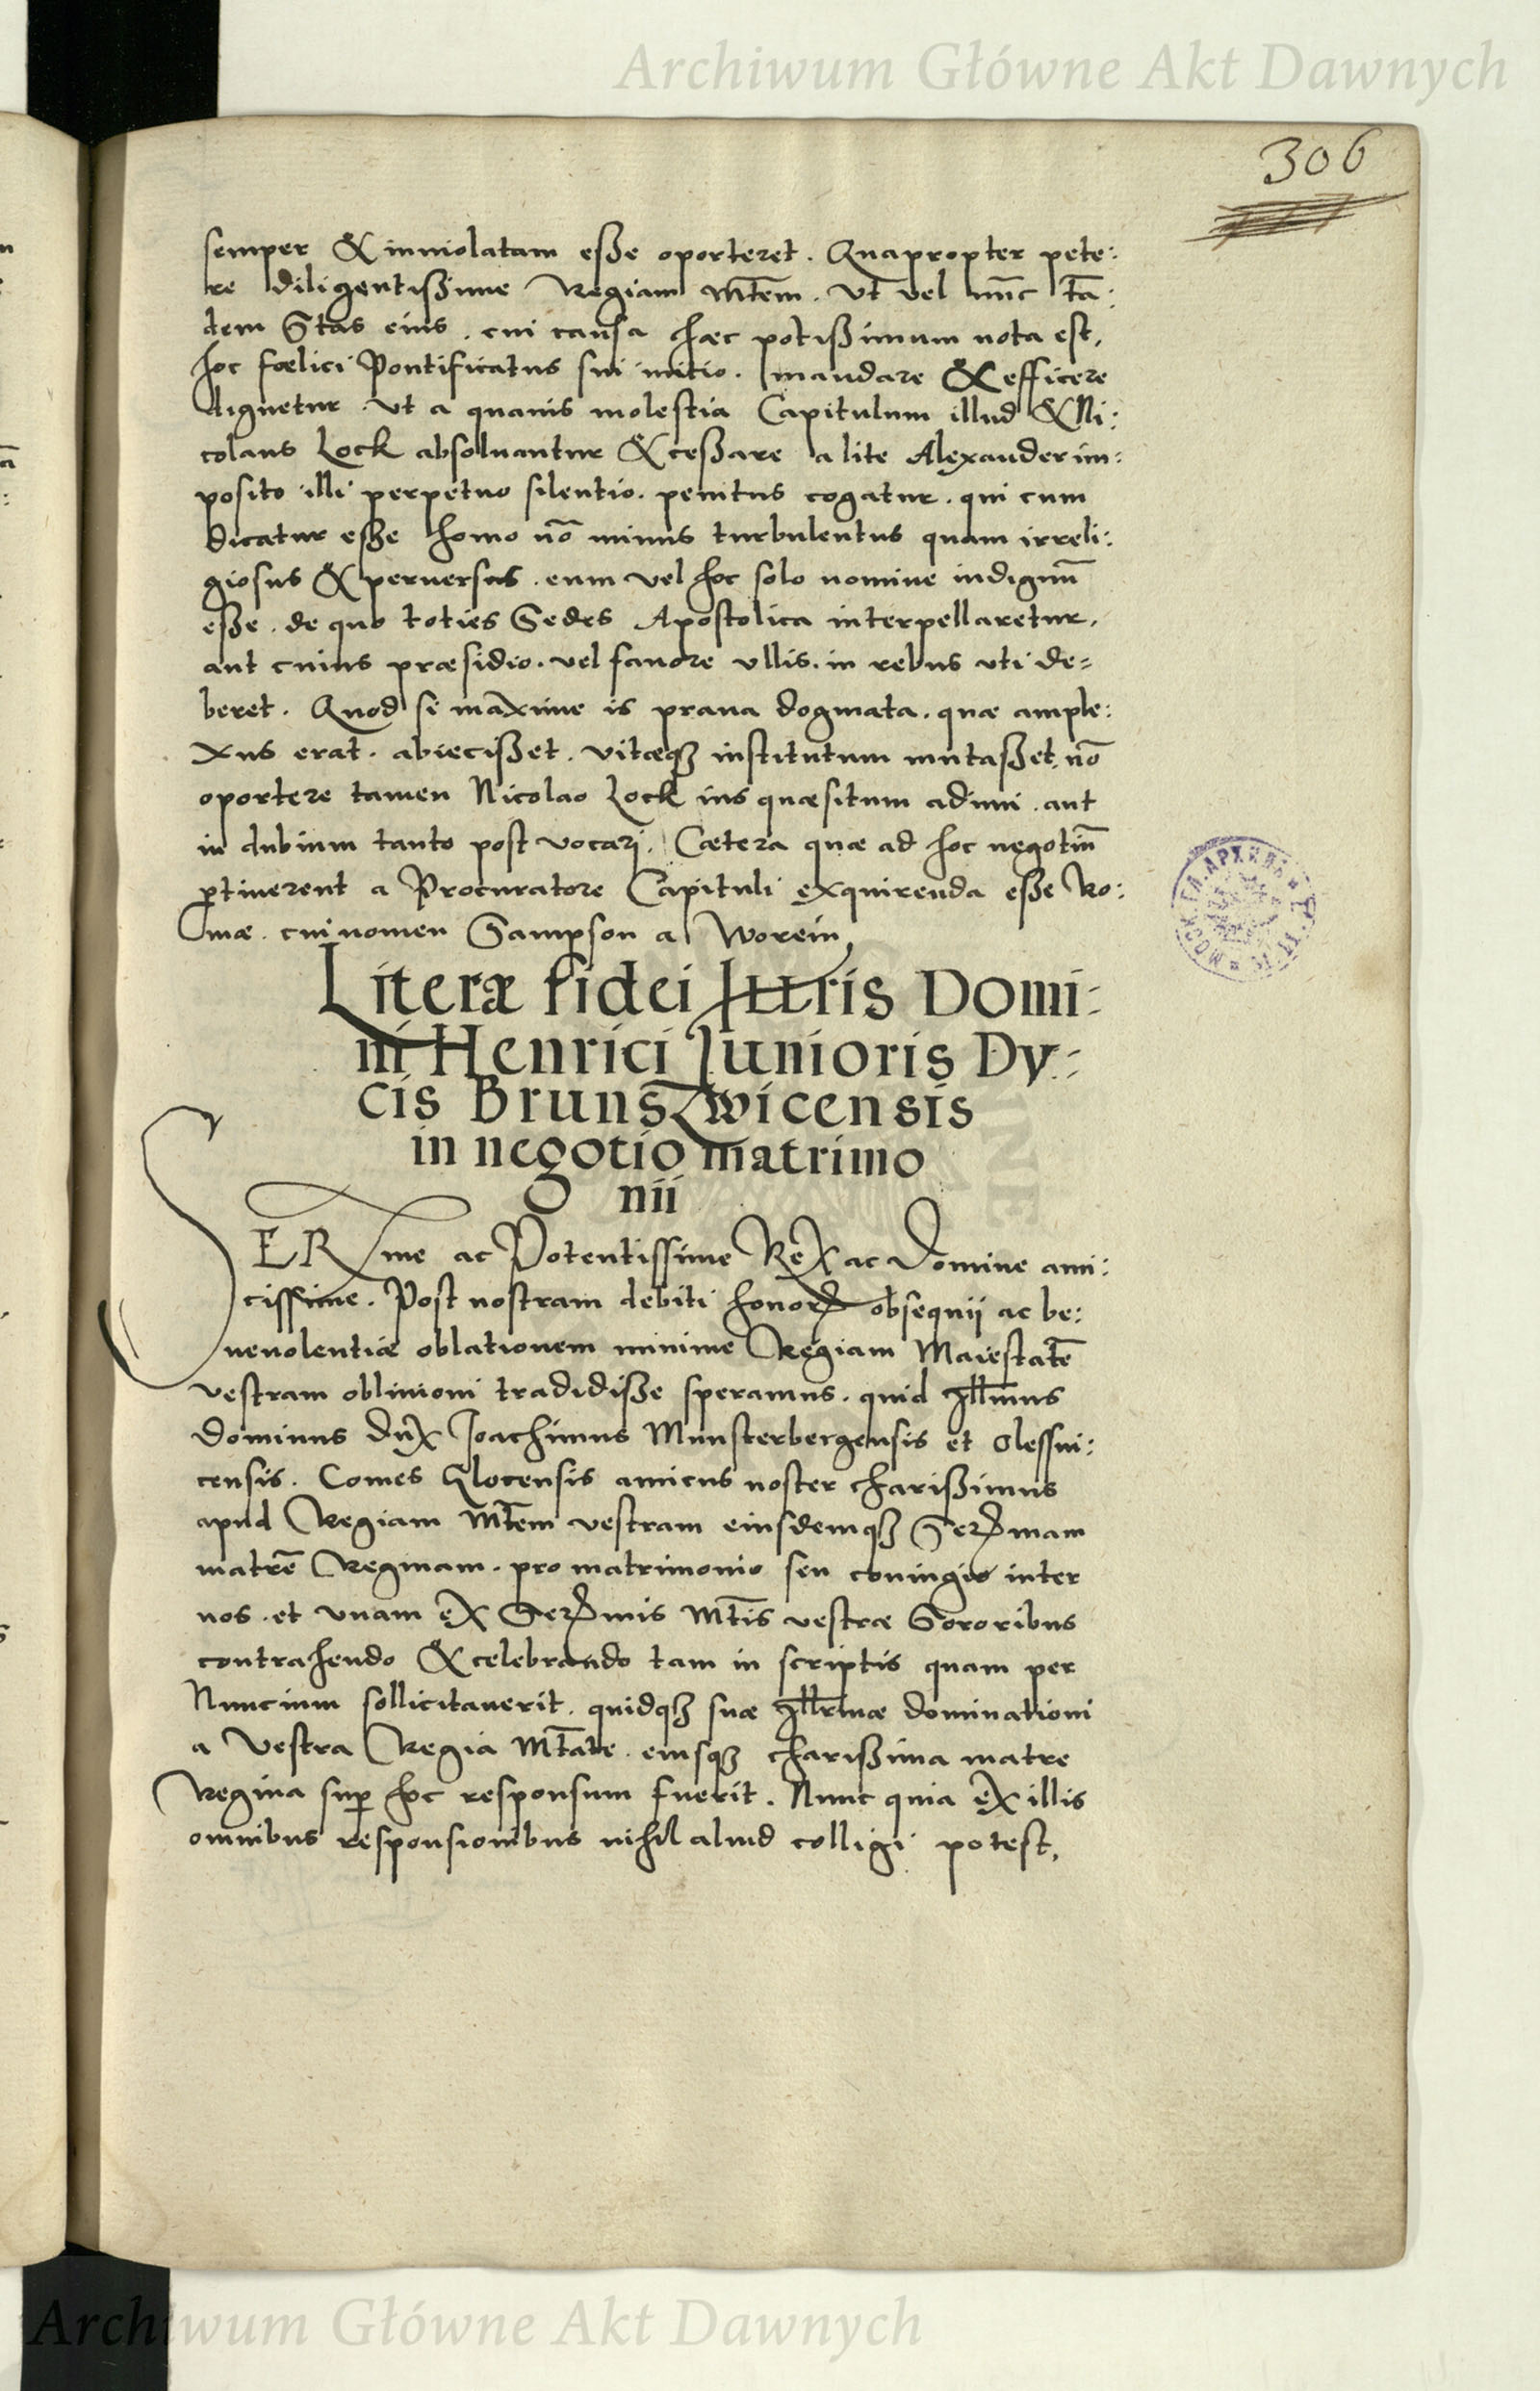 Archiwum Główne Akt Dawnych
306
semper & inuiolatam esße oporteret. Quapropter pete:
re diligentißime Regiam Mt̄em. Vt vel nūc tā:
dem S̄tas eius. cui causa hæc potißimum nota est,
hoc fœlici Pontificatus sui initio. mandare & efficere
dignetur. Vt a quauis molestia Capitulum illud & Ni:
colaus Lock absoluantur & ceßare a lite Alexander im:
posito illi perpetuo silentio. penitus cogatur. qui cum
dicatur eße homo nō minus turbulentus quam irreli:
giosus & peruersus. eum vel hoc solo nomine indignū
eße. de quo toties Sedes Apostolica interpellaretur,
aut cuius præsidio. vel fauore vllis. in rebus vti de=
beret. Quod si maxime is praua dogmata. quæ ample:
xus erat. abiecißet. vitæqȝ institutum mutaßet. nō
oportere tamen Nicolao Lock ius quæsitum adimi. aut
in dubium tanto post vocari. Cætera quæ ad hoc negotiū
ꝑtinerent a Procuratore Capituli exquirenda eße Ro:
mæ. cui nomen Sampson a Worein,
Literæ fidei Illris Domi:
ni Henrici Junioris Dv:
cis Brunszwicensis
in negotio matrimo
nii
SERme ac Potentissime Rex ac Domine ami:
cissime. Post nostram debiti honoris obsequii ac be:
neuolentiæ oblationem minime Regiam Maiestatē
vestram obliuioni tradidiße speramus. quid Illmus
Dominus Dux Joachimus Munsterbergensis et Olessni:
censis. Comes Glocensis amicus noster charißimus
apud Regiam Mt̄em vestram eiusdemqȝ Serꝰmam
matrē Reginam. pro matrimonio seu coniugio inter
nos. et vnam ex Serꝰmis Mt̄is vestræ Sororibus
contrahendo & celebrando tam in scriptis quam per
Nuncium sollicitauerit. quidqȝ suæ Illrmæ dominationi
a Vestra Regia Mt̄ate. eiusqȝ charißima matre
Regina suꝑ hoc responsum fuerit. Nunc quia ex illis
omnibus responsionibus nihil aliud colligi potest,
Archiwum Główne Akt Dawnych